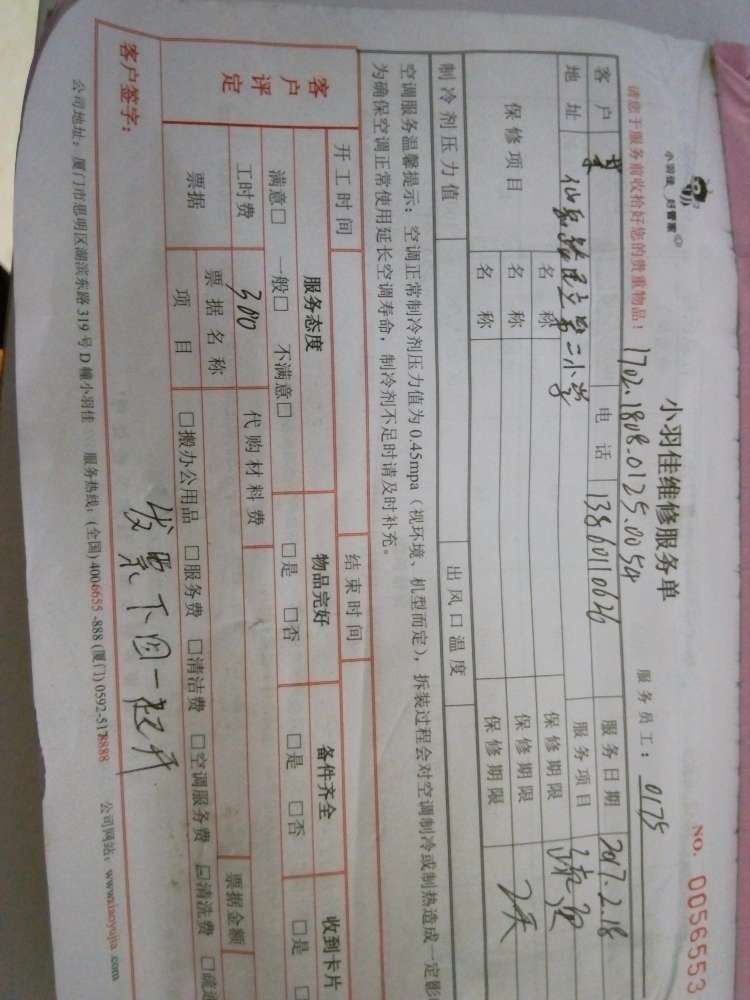 小羽佳 好管家
小羽佳维修服务单
NO. 0056553
请您于服务前收拾好您的贵重物品！ 1702.1808.0125.0054 服务员工：0175
客户 电话 13860110626 服务日期 2017.2.18
地址 仙岳路 第二小学 服务项目 清洗
保修项目 名称 保修期限
名称 保修期限 2天
名称 保修期限
制冷剂压力值 出风口温度
空调服务温馨提示：空调正常制冷剂压力值为0.45mpa（视环境、机型而定），拆装过程会对空调制冷或制热造成一定影
为确保空调正常使用延长空调寿命，制冷剂不足时请及时补充。
开工时间 结束时间
客户评定 服务态度 物品完好 备件齐全 收到卡片
满意□ 一般□ 不满意□ □是 □否 □是 □否 □是 □
工时费 300 代购材料费
票据 票据名称 票据金额
项目 □搬办公用品 □服务费 □清洁费 □空调服务费 □清洗费 □疏通
客户签字： 发票下回一起开
公司地址：厦门市思明区湖滨东路319号D幢小羽佳 服务热线：(全国)4006655-888 (厦门)0592-5178888 公司网站：www.xiaoyujia.com